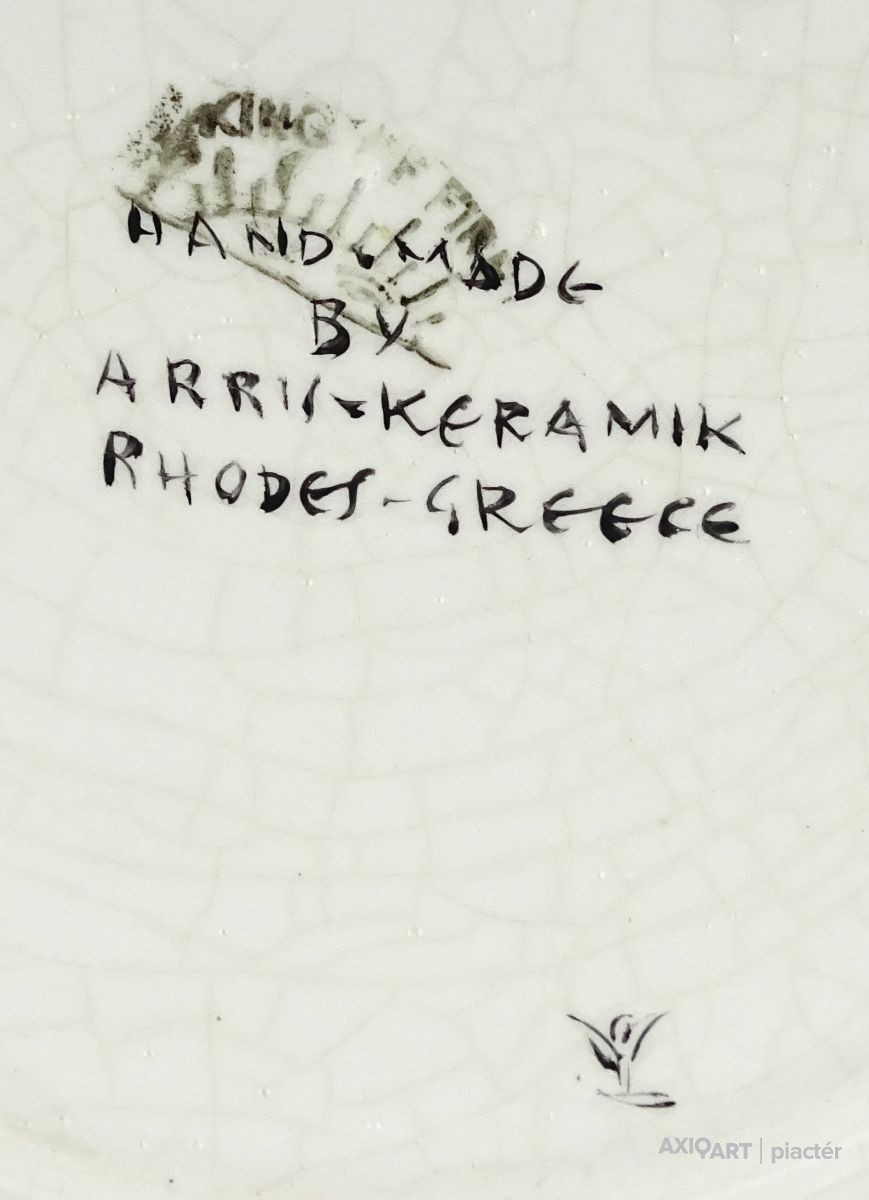 KING
HAND-MADE
BY
ARRIS-KERAMIK
RHODES-GREECE
AXIOART | piactér